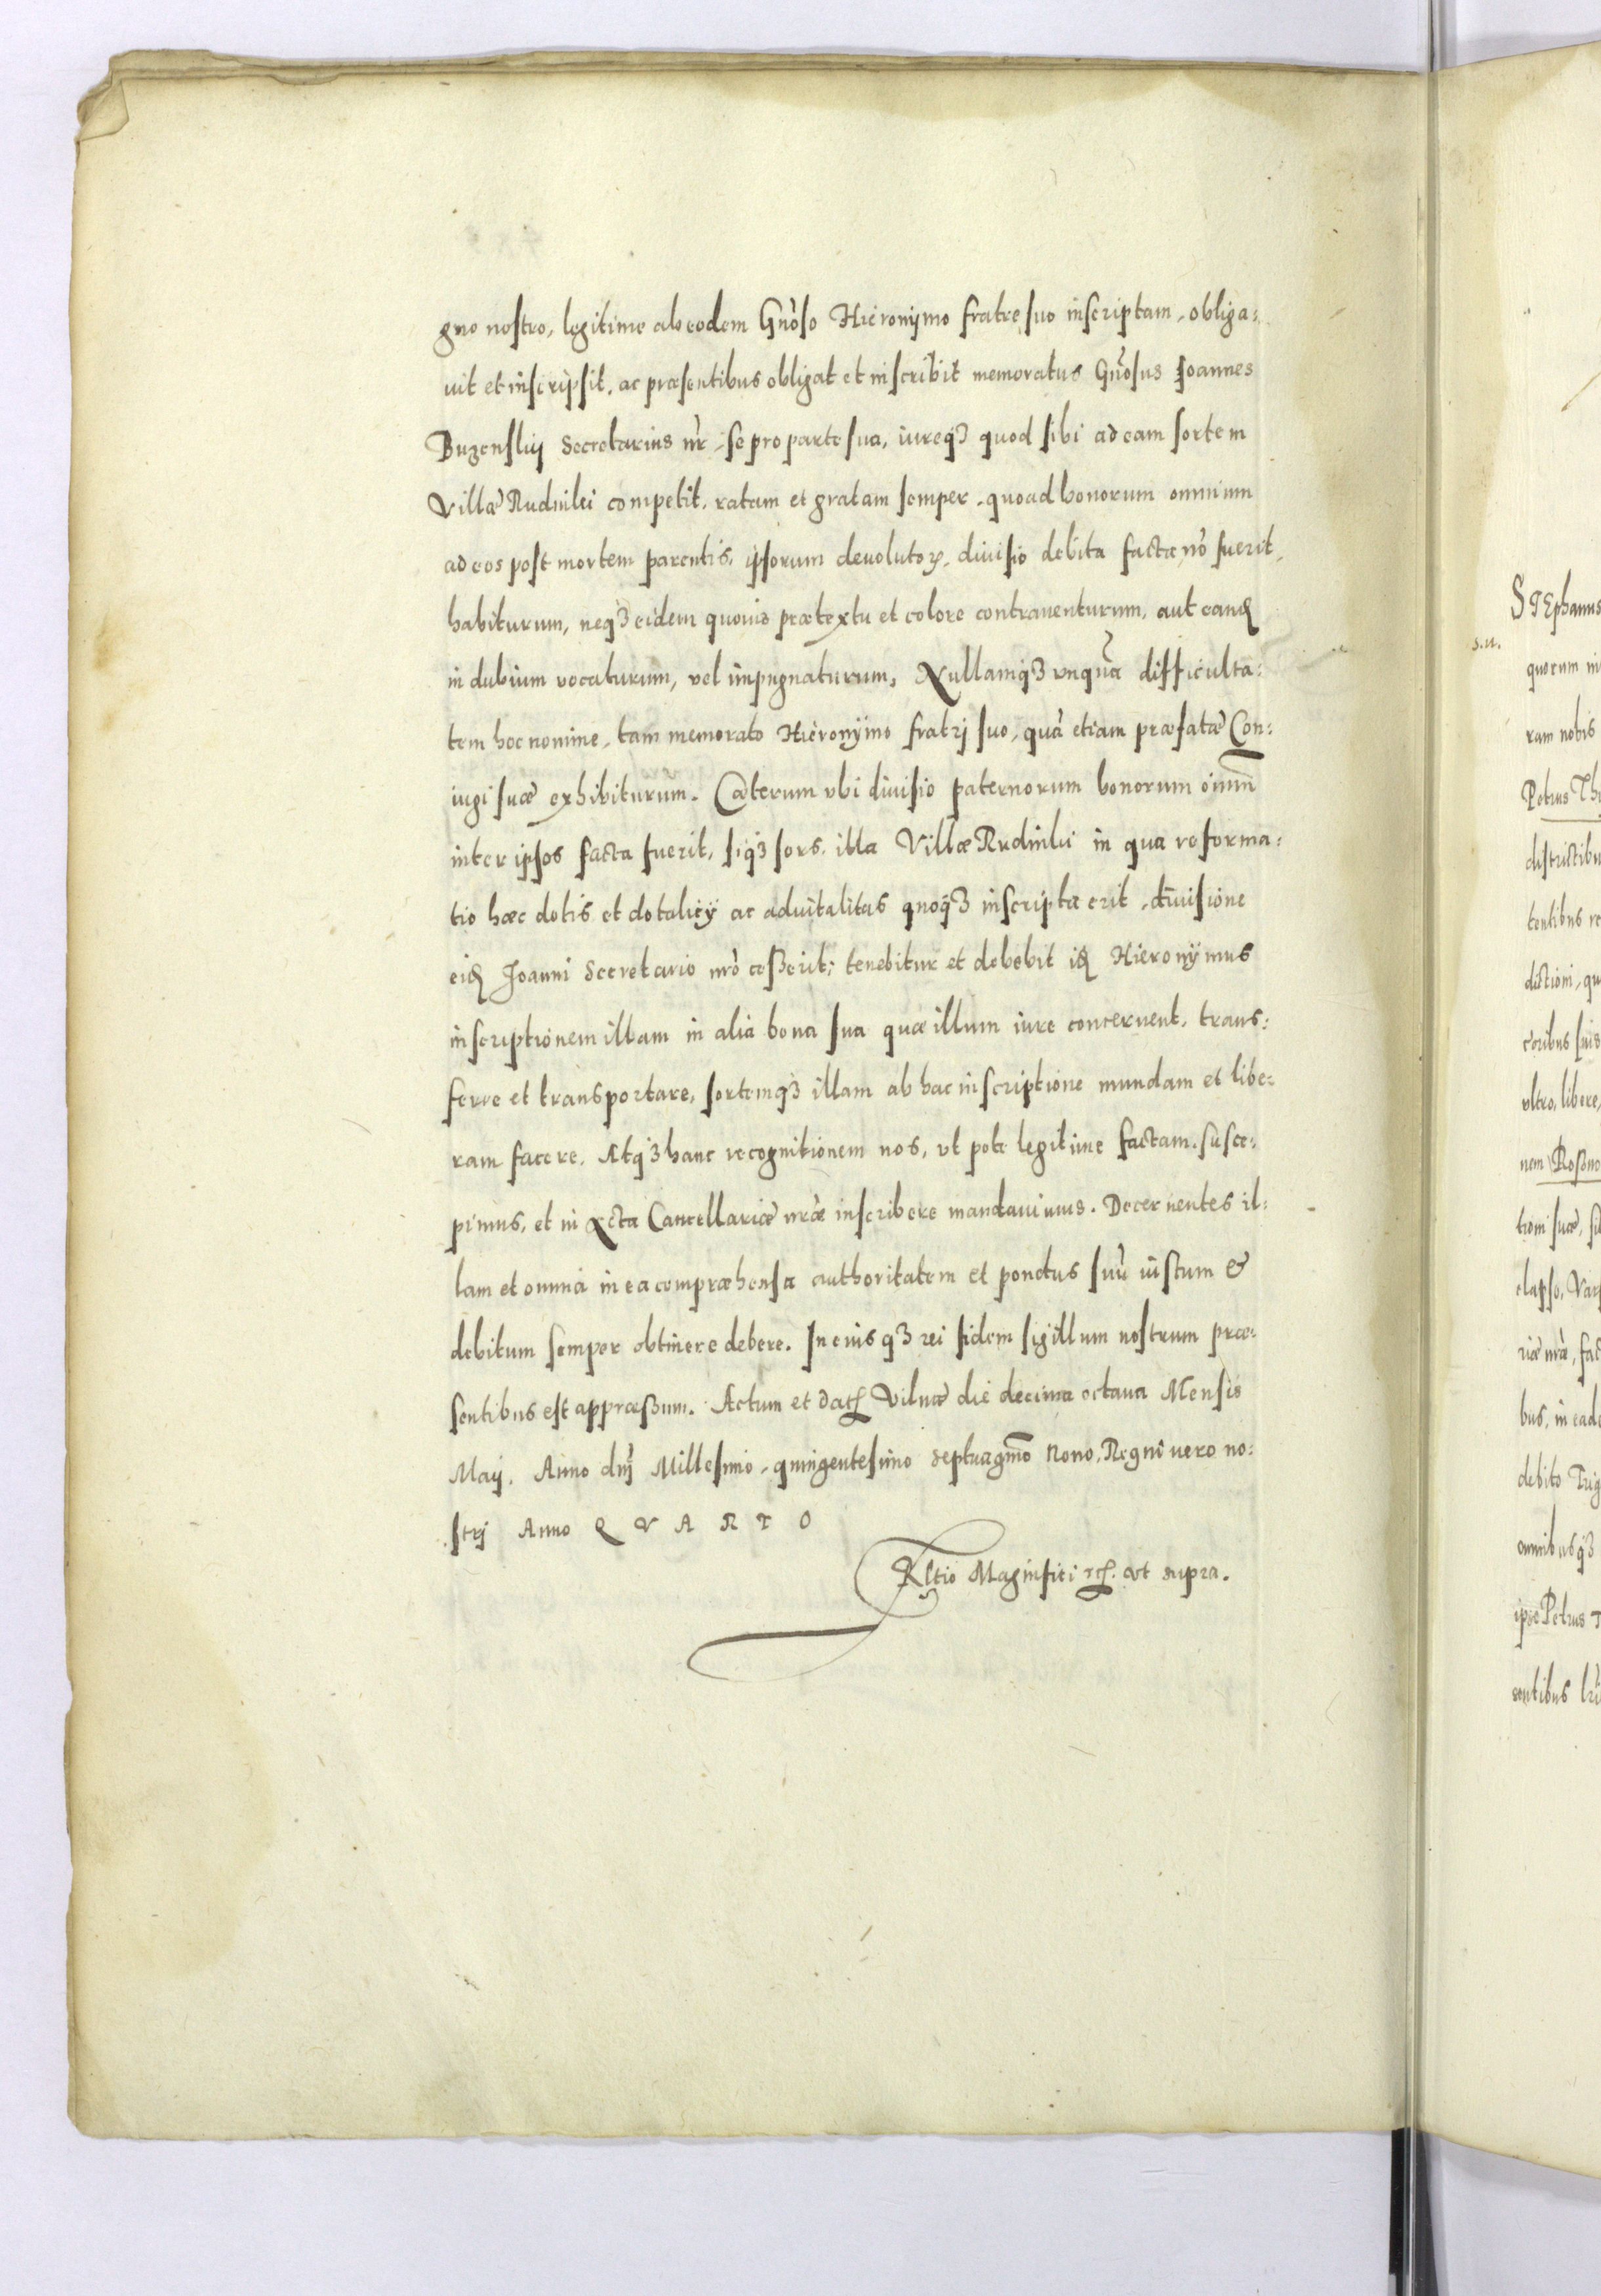 gno nostro, legitime ab eodem Gnoso Hieronymo fratre suo inscriptam, obliga:
uit et inscripsit, ac præsentibus obligat et inscribit memoratus Gnosus Joannes
Buzenskij Secretarius nr, se pro parte sua, iureq3 quod sibi ad eam sortem
Villæ Rudniki competit, ratam et gratam semper, quoad bonorum omnium
ad eos post mortem parentis, ipsorum deuolutoꝝ, diuisio debita facta nõ fuerit,
habiturum, neq3 eidem quouis prætextu et colore contrauenturum, aut eand
in dubium vocaturum, vel impugnaturum, Nullamq3 vnquã difficulta:
tem hoc nomine, tam memorato Hieronymo fratrj suo, quã etiam præfatæ Con:
iugi suæ exhibiturum. Cæterum vbi diuisio paternorum bonorum oium
inter ipsos facta fuerit, siq3 sors, illa Villæ Rudniki in qua reforma:
tio hæc dotis et dotalicÿ ac aduitalitas quoq3 inscripta erit, diuisione
eid Joanni Secretario nrõ cesserit; tenebitur et debebit id Hieronymus
inscriptionem illam in alia bona sua quæ illum iure concernent, trans:
ferre et transportare, sortemq3 illam ab hac inscriptione mundam et libe:
ram facere. Atq3 hanc recognitionem nos, vt pote legitime factam, susce:
pimus, et in Acta Cancellariæ nræ inscribere mandauimus. Decernentes il:
lam et omnia in ea compræhensa authoritatem et pondus suũ iustum &
debitum semper obtinere debere. In cuius q3 rei fidem sigillum nostrum præ:
sentibus est appræssum. Actum et dat Vilnæ die decima octaua Mensis
Maij. Anno dnj Millesimo, quingentesimo septuagmo Nono, Regni uero no:
strj Anno Q V A R T O
Rltio Magnifici etc. vt supra.
STEphanus
s.n.
quorum
ram nobis
Petrus
tentibus
vltro, libere,
elapso,
debito
omnibusq3
ipse Petrus